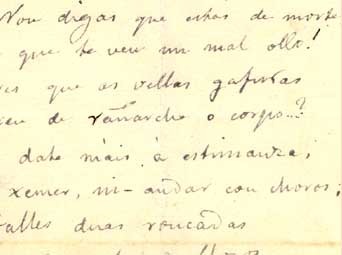 Nou digas que estas de morte
que te veu un mal ollo!
que as vellas gafuras
de rañarche o corpo...?
date mais á estimanza,
xemer, ni-andar cou choros;
dalles duas roncadas